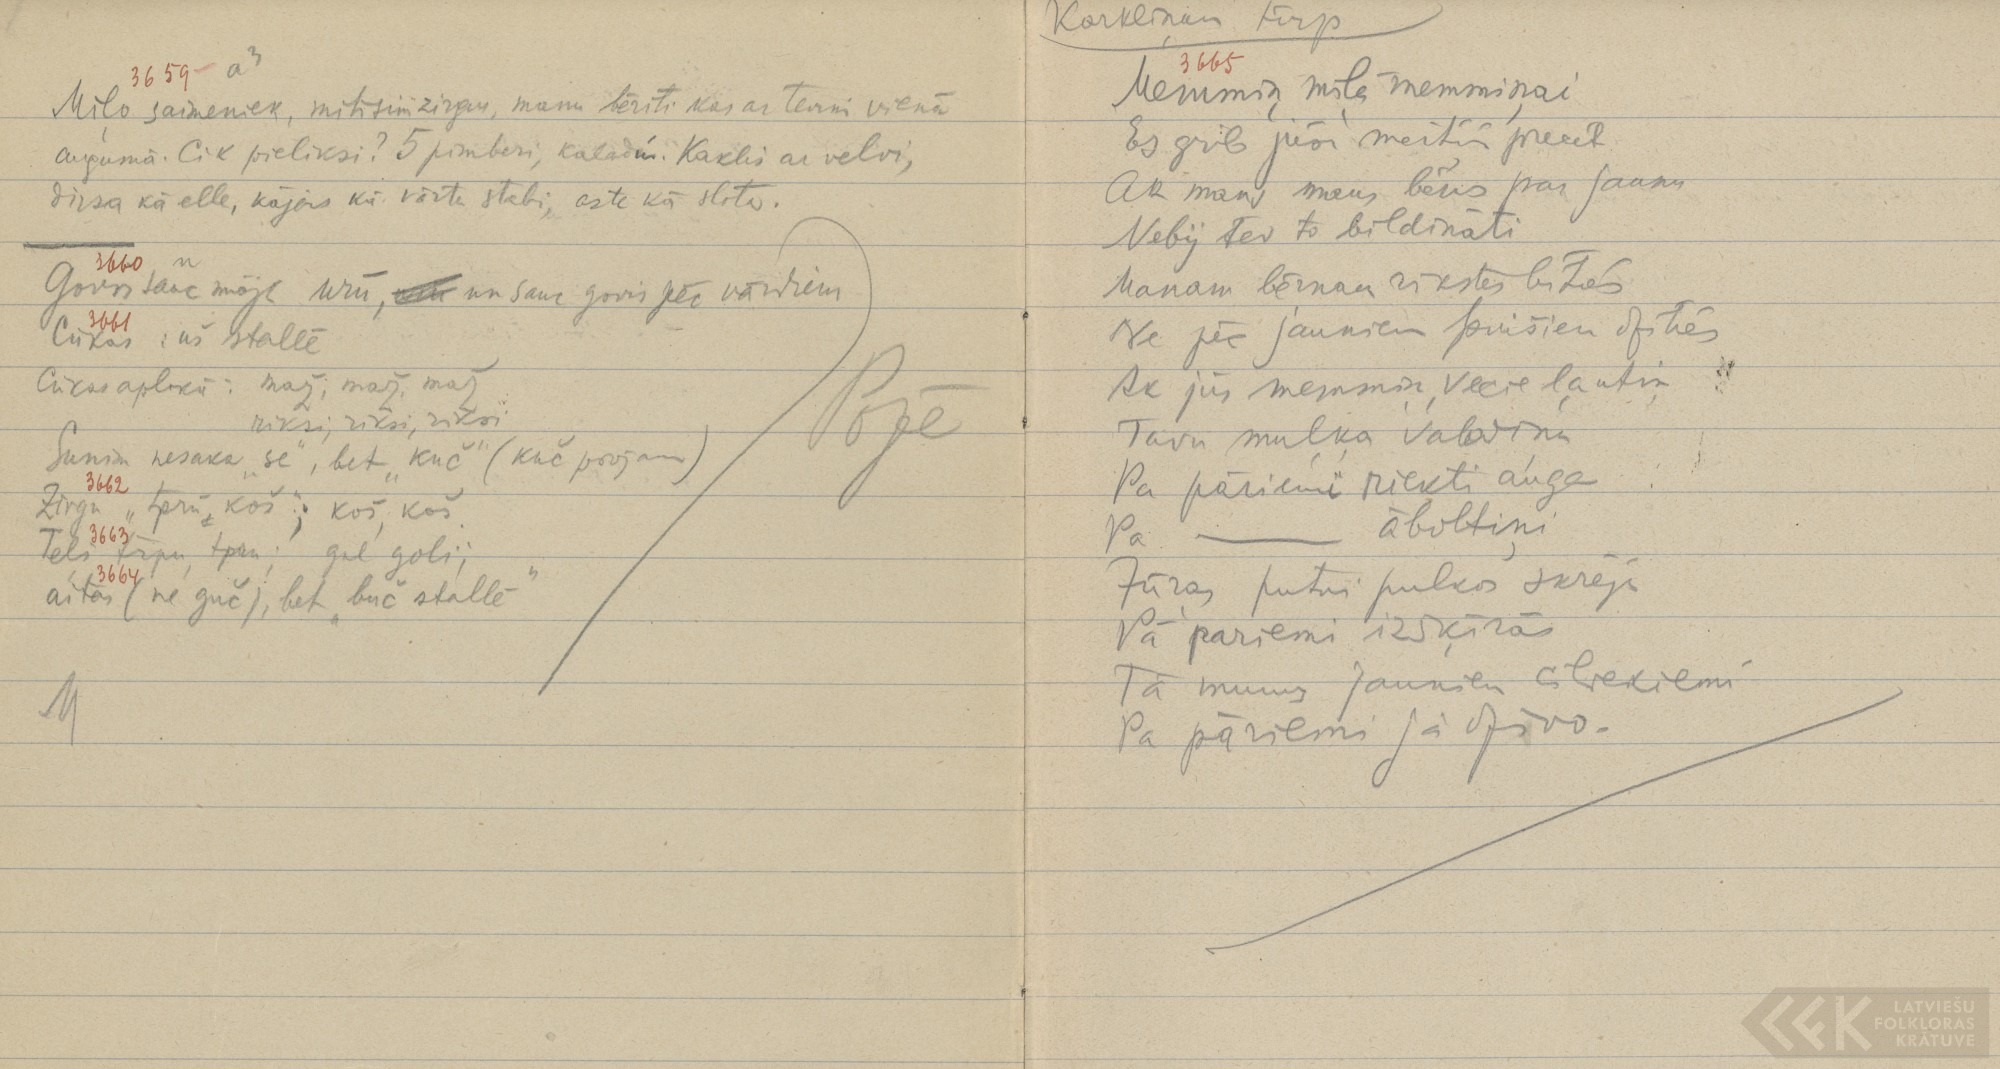 3659 a³
Miļo saimeniek, mitisim zirgus, manu bērīti kas ar tevmi vienā
augumā. Cik pieliksi? 5 pimberi, Kaklis ar velvi,
dirsa kā elle, kājas kā vārtu stabi, aste kā slota.
3660
Govis sauc mājā ūrū, un sauc govis pēc vārdiem
3661
Cūkas: uš stallē
Cūkas aplokā: maž, maž, maž
riksi, riksi, riksi
Sunim nesaka "se", bet "kuč" (kuč projam)
3662
Zirgu "tprū, koš"; koš, koš
3663
Teļš tpru, ; gul goli;
3664
aitas (ne guč), bet "buč stallē"
Pope
Karkliņau
3665
Memmiņ mīļa memmiņai
Es grib jūsi meitiņ precēt
Ak manu manu bērns par jaunu
Nebij tev to bildināti
Manam bērnam rīkstes
Ne pēc jauniem puišiem
Ak jūs memmiņ, vecie ļautiņ
Tavu muļķa valodiņu
Pa pāriemi riekti auga
Pa ——— āboltiņi
Jūras putni pulkos skrēja
Pa pariemi izšķīrās
Tā mums jauniem cilvekiemi
Pa pāriemi jā dzīvo.
LATVIEŠU
FOLKLORAS
KRĀTUVE